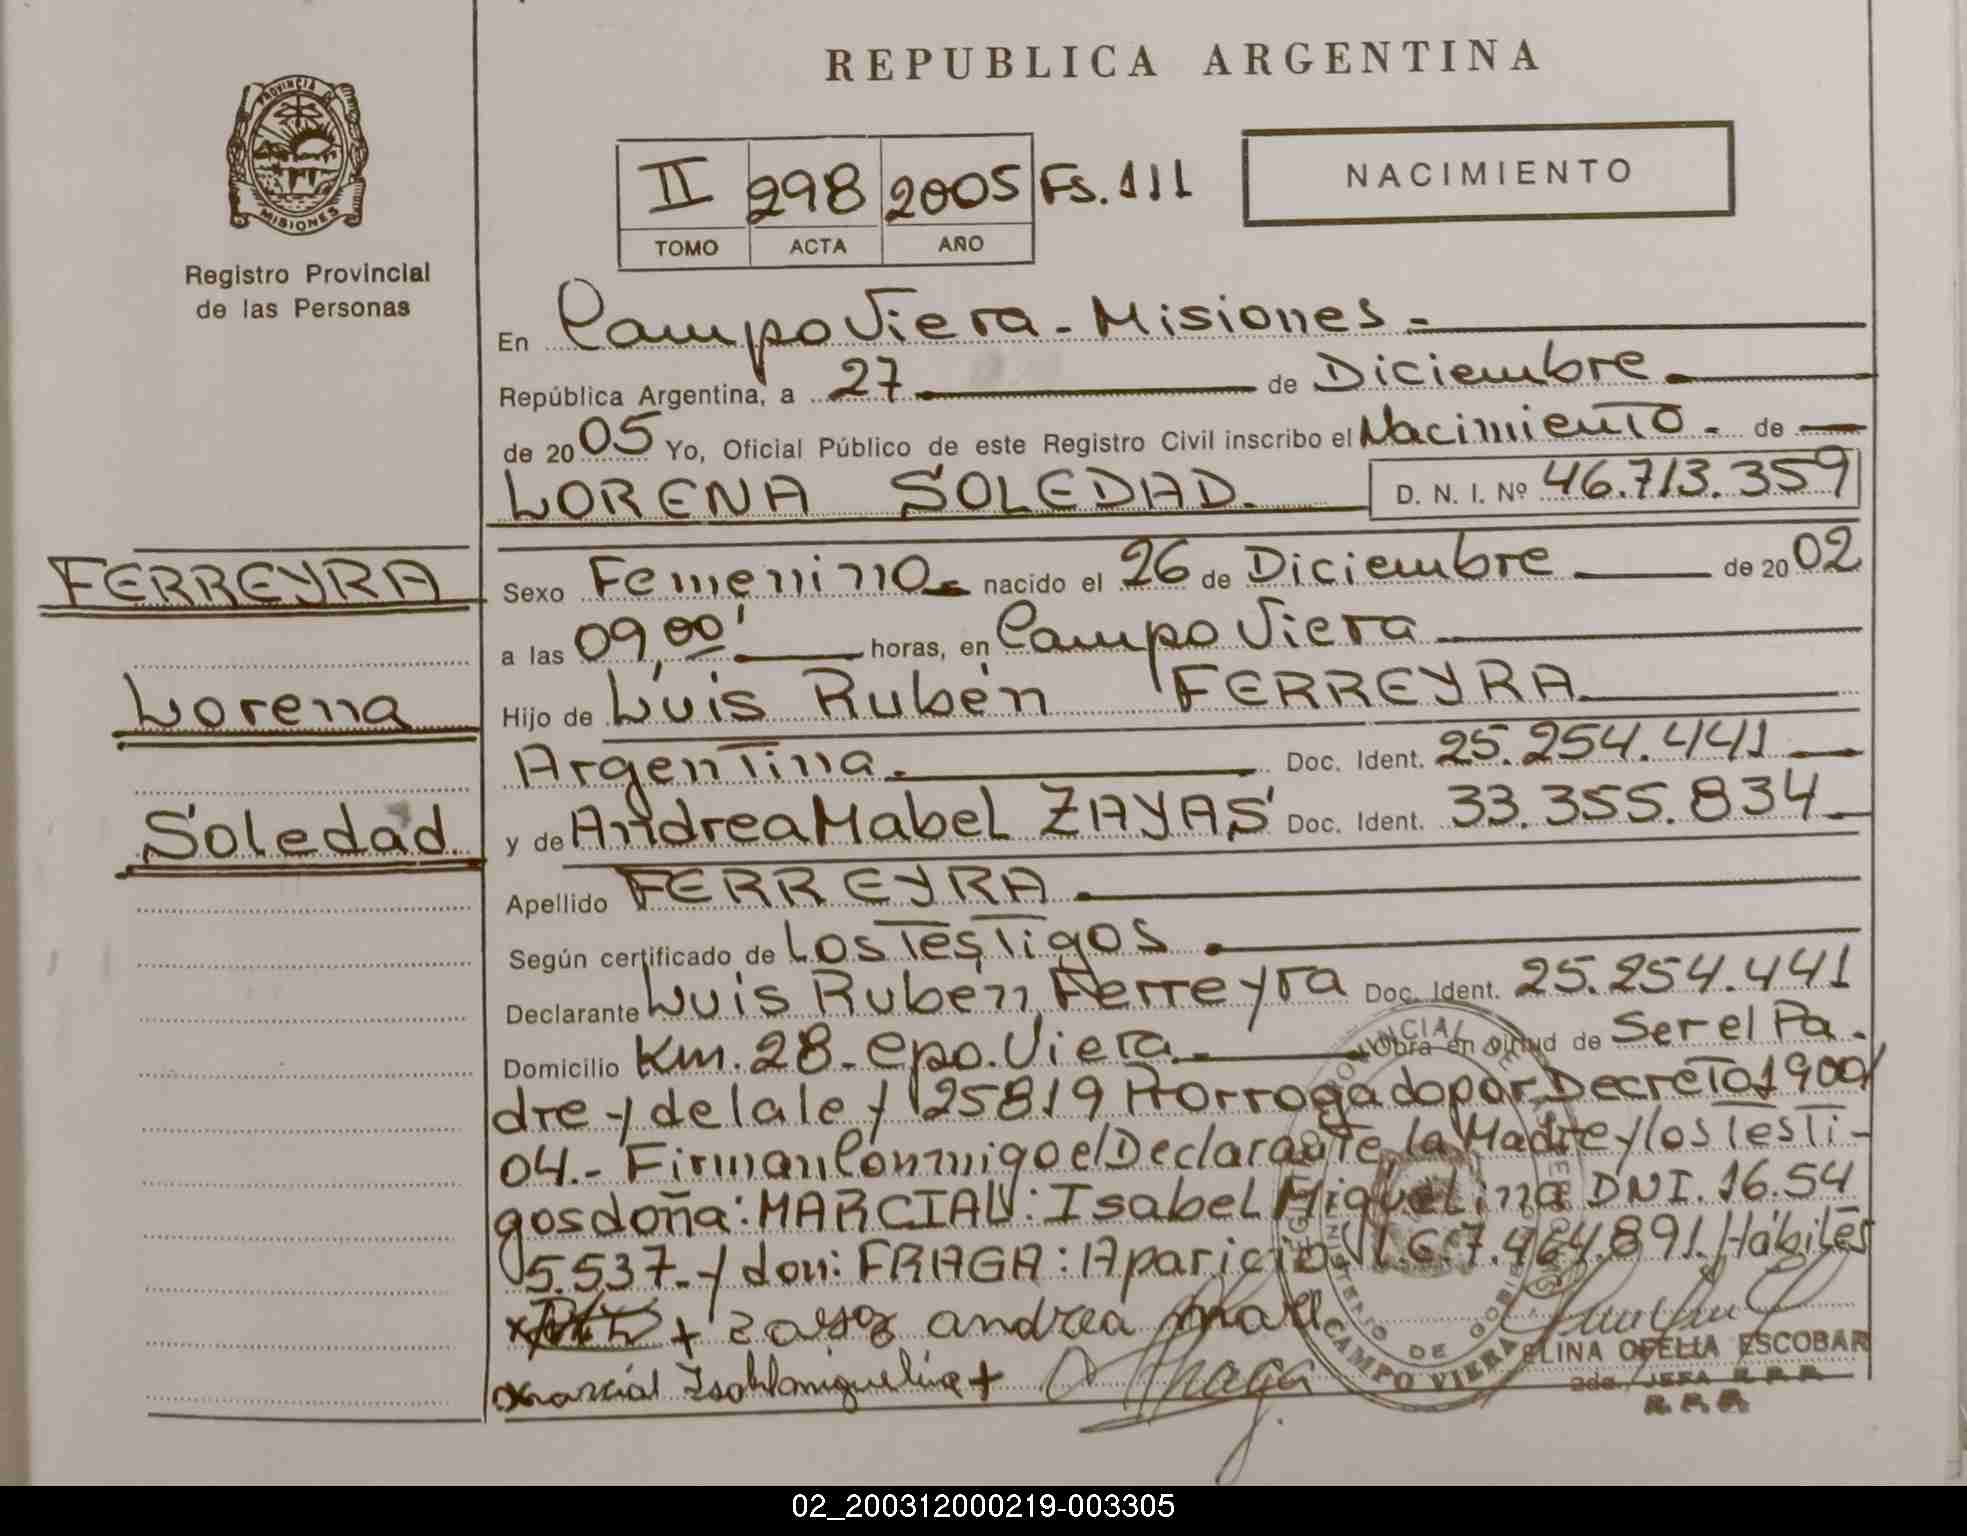 REPUBLICA ARGENTINA
PROVINCIA DE
MISIONES
Registro Provincial
de las Personas
II 298 2005 Fs. 111
TOMO ACTA AÑO
NACIMIENTO
En Campo Viera - Misiones -
República Argentina, a 27 de Diciembre
de 2005 Yo, Oficial Público de este Registro Civil inscribo el Nacimiento - de
LORENA SOLEDAD. D. N. I. Nº 46.713.359
FERREYRA
Lorena
Soledad
Sexo Femenino nacido el 26 de Diciembre de 2002
a las 09,00' horas, en Campo Viera
Hijo de Luis Rubén FERREYRA
Argentina. Doc. Ident. 25.254.441
y de Andrea Mabel ZAYAS Doc. Ident. 33.355.834
Apellido FERREYRA
Según certificado de Los Testigos
Declarante Luis Ruben Ferreyra Doc. Ident. 25.254.441
Domicilio Km. 28 - Cpo. Viera Obra en virtud de Ser el Pa-
dre y de la ley 25819 Prorrogado por Decreto 1900/
04.- Firman Conmigo el Declarante, la Madre y los Testi-
gos doña: MARCIAL: Isabel Miguelina DNI. 16.54
5.537.- y don: FRAGA: Aparicio M.G. 7.464.891. Hábiles
zayaz andrea
marcial
Fraga
MINISTERIO DE GOBIERNO
CAMPO VIERA
ELINA OFELIA ESCOBAR
JEFA R.P.P.
02_200312000219-003305